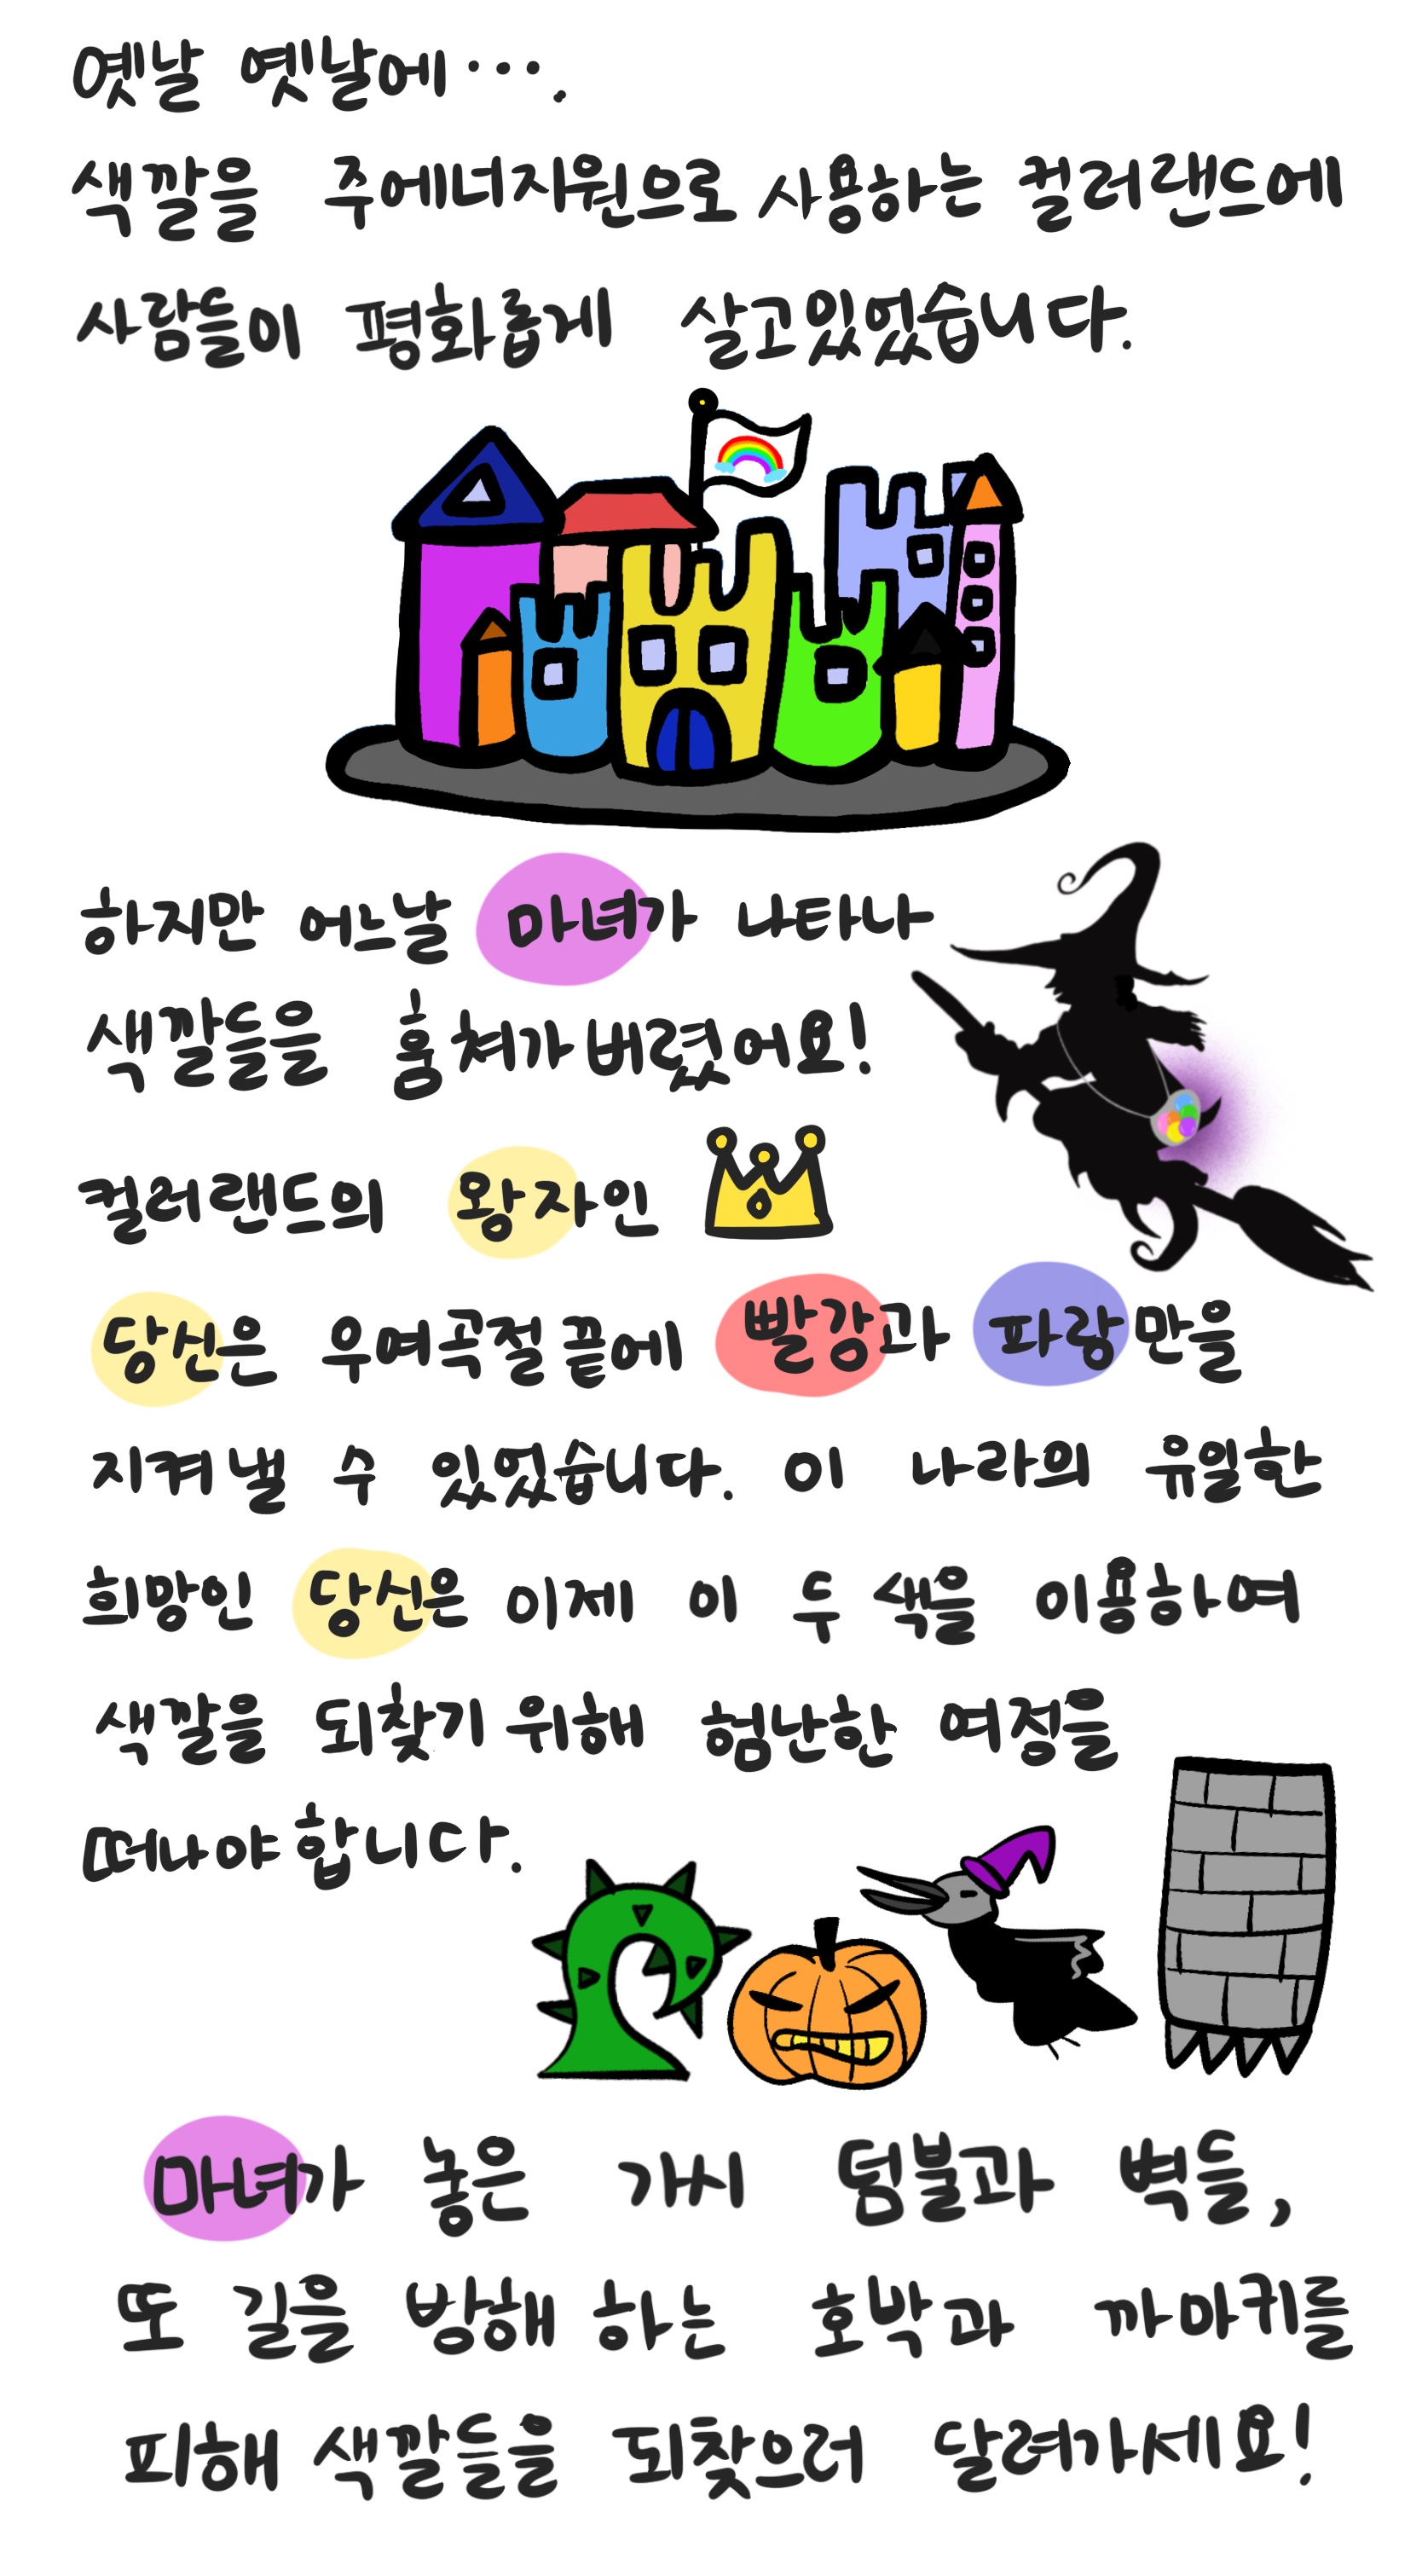 옛날 옛날에....
색깔을 주에너지원으로 사용하는 컬러랜드에
사람들이 평화롭게 살고있었습니다.
하지만 어느날 마녀가 나타나
색깔들을 훔쳐가버렸어요!
컬러랜드의 왕자인
당신은 우여곡절 끝에 빨강과 파랑만을
지켜낼 수 있었습니다. 이 나라의 유일한
희망인 당신은 이제 이 두 색을 이용하여
색깔을 되찾기 위해 험난한 여정을
떠나야합니다.
마녀가 놓은 가시 덤불과 벽들,
또 길을 방해 하는 호박과 까마귀를
피해 색깔들을 되찾으러 달려가세요!